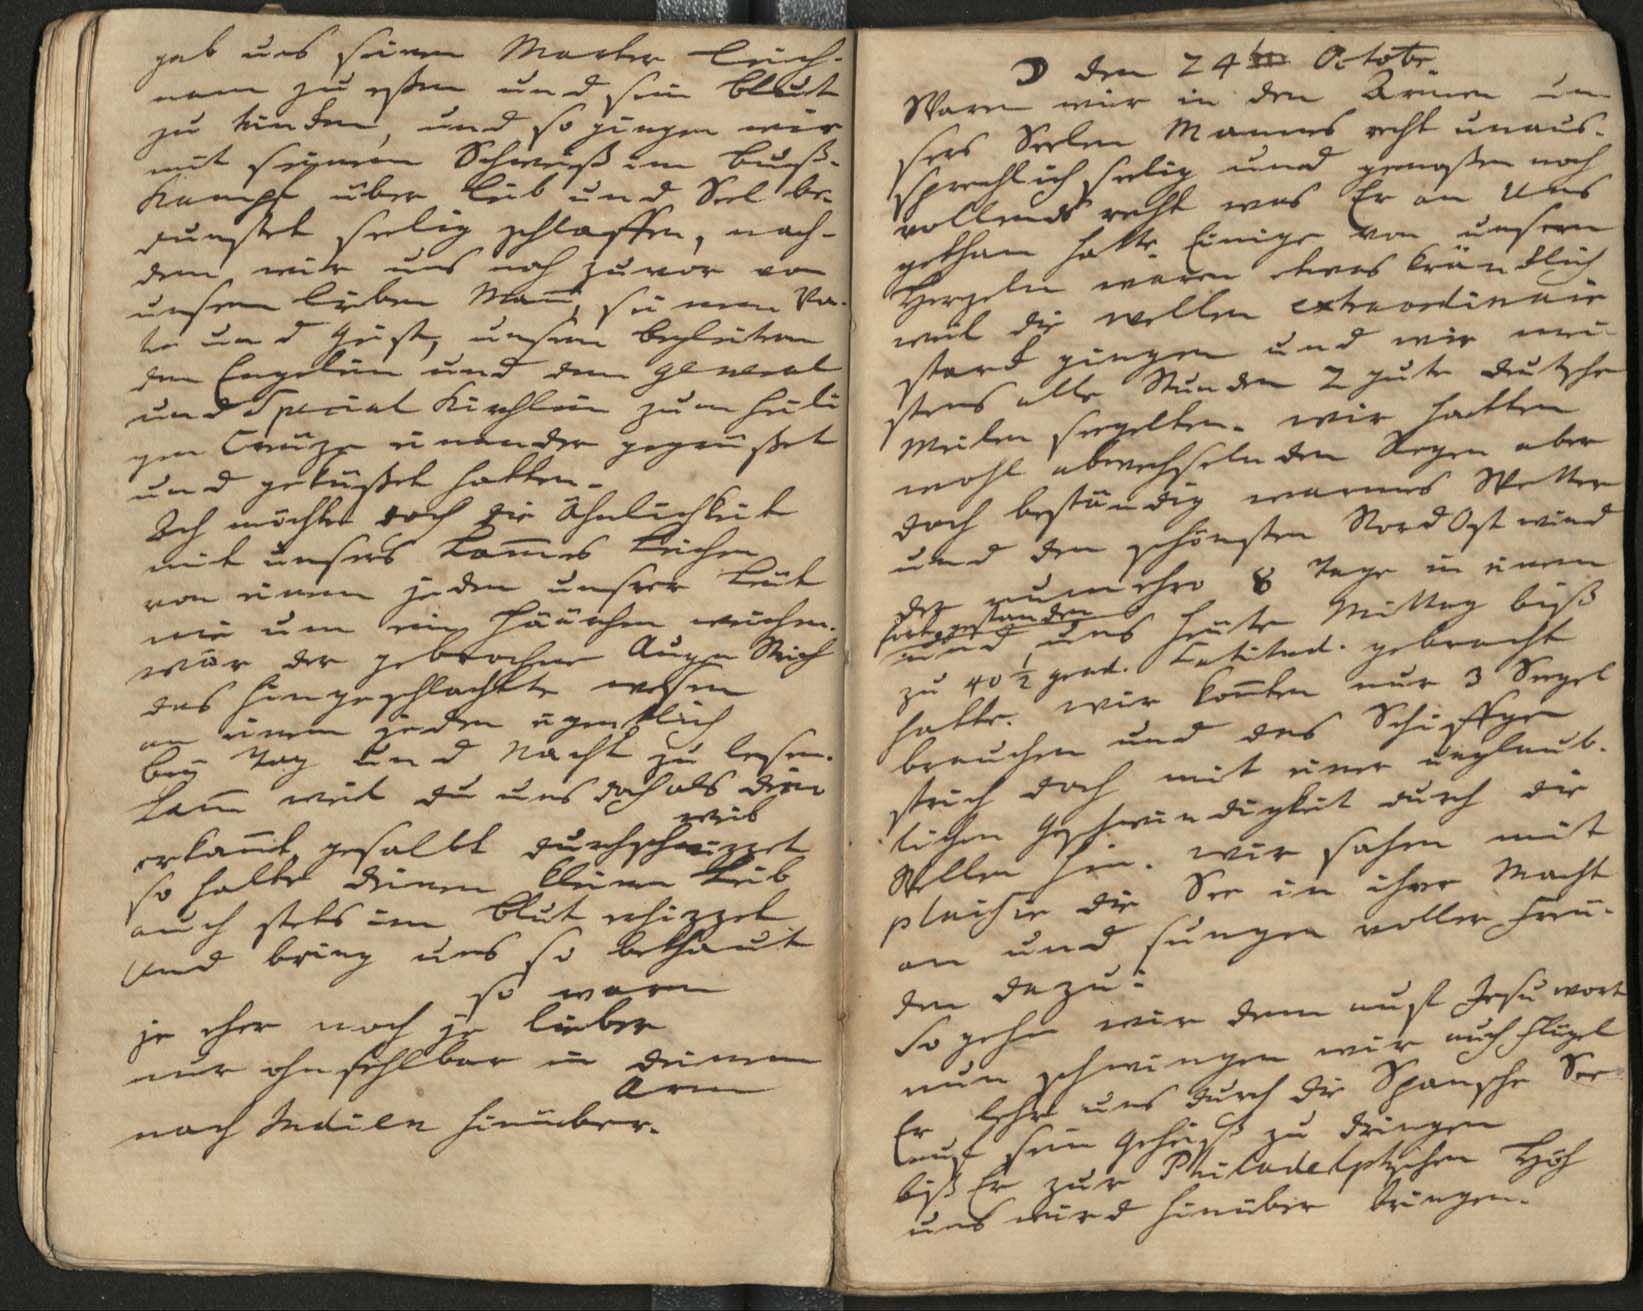 gab uns seinen Marter Leich-
nam zu eßen und sein Blut
zu trinken, und so gingen wir
mit seinem Schweiß im Buß-
Kampf über Leib und Seel be-
dunstet seelig schlaffen, nach-
dem wir uns noch zuvor von
unserm lieben Mann, seinem Va-
ter und Geist, unsern begleitern
den Engelein und dem General
und Special Kirchlein zum heili
gen Creuze einander gegrüßet
und geküßet hatten.
Ich möchte doch die Ähnlichkeit
mit unsers Lammes Leichen
von einem jeden unsrer Leut
nie um ein Häärchen weichen.
wär der gebrochne Augen Strich
das hingeschlachtte wesen
an einem jeden eigentlich
bey Tag und Nacht zu lesen.
Lamm weil du uns doch als dein
weib
erkannt gesalbt durchschwizzet
so halte deinen kleinen Leib
auch stets im Blut erhizzet
Und bring uns so bethaut
so warm
je eher noch je lieber
nur ohnfehlbar in deinem
Arm
nach Indien hinüber.
☽ den 24ten Octobr.
Waren wir in den Armen un-
sers Seelen Mannes recht unaus-
sprechlich selig und genoßen noch
vollends recht was Er an Uns
gethan hatte. Einige von unsern
Herzeln waren etwas kränklich
weil die wellen extraordinair
starck gingen und wir mei-
stens alle Stunden 2 gute deutsche
Meilen seegelten. wir hatten
wohl abwechselnden Regen aber
doch beständig warmes Wetter
und den schönsten Nord Ost wind
der nunmehro 8 Tage in einem
fortgestanden
und uns heute Mittag biß
zu 40 1/2 grad. Latitud. gebracht
hatte. wir konnten nur 3 Seegel
brauchen und das Schiffgen
strich doch mit einer unglaub-
lichen Geschwindigkeit durch die
Wellen hin. wir sahen mit
plaisir die See in ihrer Macht
an und sungen voller Freu-
den dazu:
So gehn wir denn aufs Jesu wort
nun schwingen wir auch Flügel
Er lehr uns durch die Spansche See
auf sein Geheiß zu dringen
biß Er zur Philadelphschen Höh
uns wird hinüber bringen.